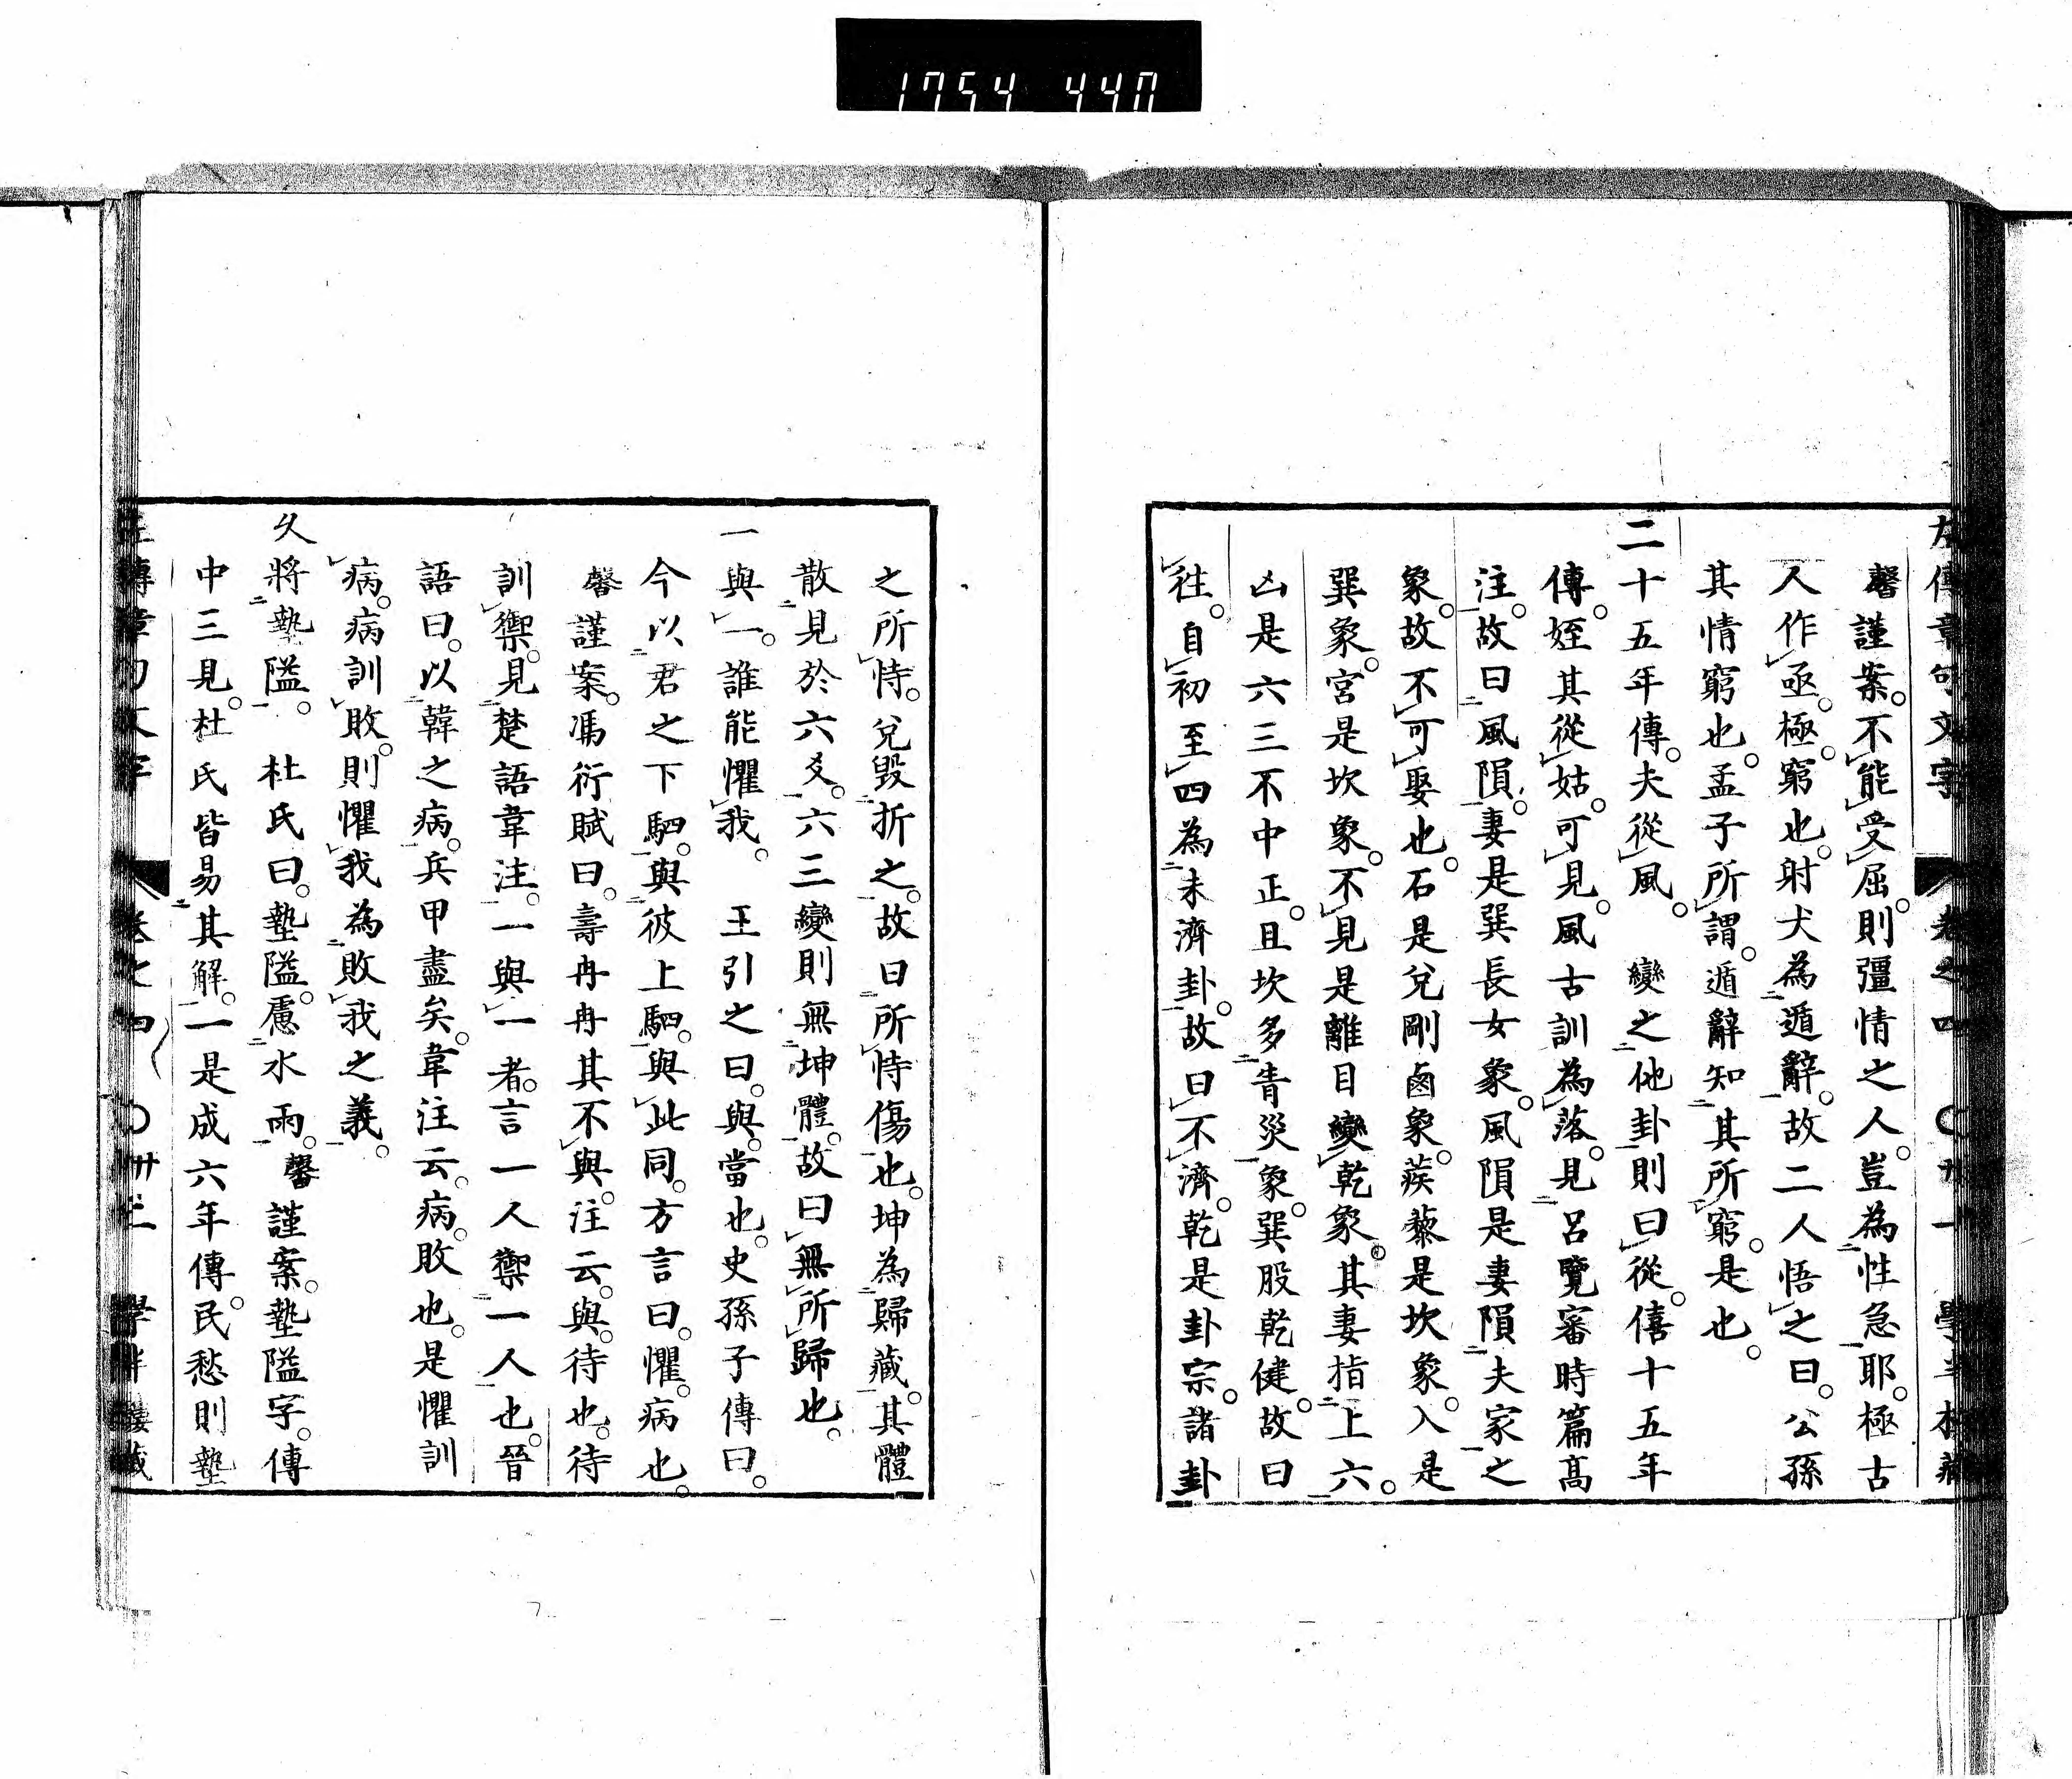 1754 440
左傳章句文字 卷之四 〇卅一 學半樓藏
馨謹案。不能受屈。則彊情之人。豈為性急耶。極古
人作亟。極。窮也。射犬為遁辭。故二人悟之曰。公孫
其情窮也。孟子所謂。遁辭知其所窮。是也。
二十五年傳。夫從風。 變之他卦則曰從。僖十五年
傳。姪其從姑。可見。風古訓為落。見呂覽審時篇高
注。故曰風隕。妻是巽長女象。風隕是妻隕夫家之
象。故不可娶也。石是兌剛鹵象。蒺藜是坎象。入是
巽象。宮是坎象。不見是離目變乾象。其妻指上六。
凶是六三不中正。且坎多眚災象。巽股乾健。故曰
往。自初至四為未濟卦。故曰不濟。乾是卦宗。諸卦
之所恃。兌毀折之。故曰所恃傷也。坤為歸藏。其體
散見於六爻。六三變則無坤體。故曰無所歸也。
一與一。誰能懼我。 王引之曰。與。當也。史孫子傳曰。
今以君之下駟。與彼上駟。與此同。方言曰。懼。病也。
馨謹案。馮衍賦曰。壽冉冉其不與。注云。與。待也。待
訓禦。見楚語韋注。一與一者。言一人禦一人也。晉
語曰。以韓之病。兵甲盡矣。韋注云。病。敗也。是懼訓
病。病訓敗。則懼我為敗我之義。
久將墊隘。 杜氏曰。墊隘。慮水雨。馨謹案。墊隘字。傳
中三見。杜氏皆易其解。一是成六年傳。民愁則墊
左傳章句文字 卷之四 〇卅二 學半樓藏